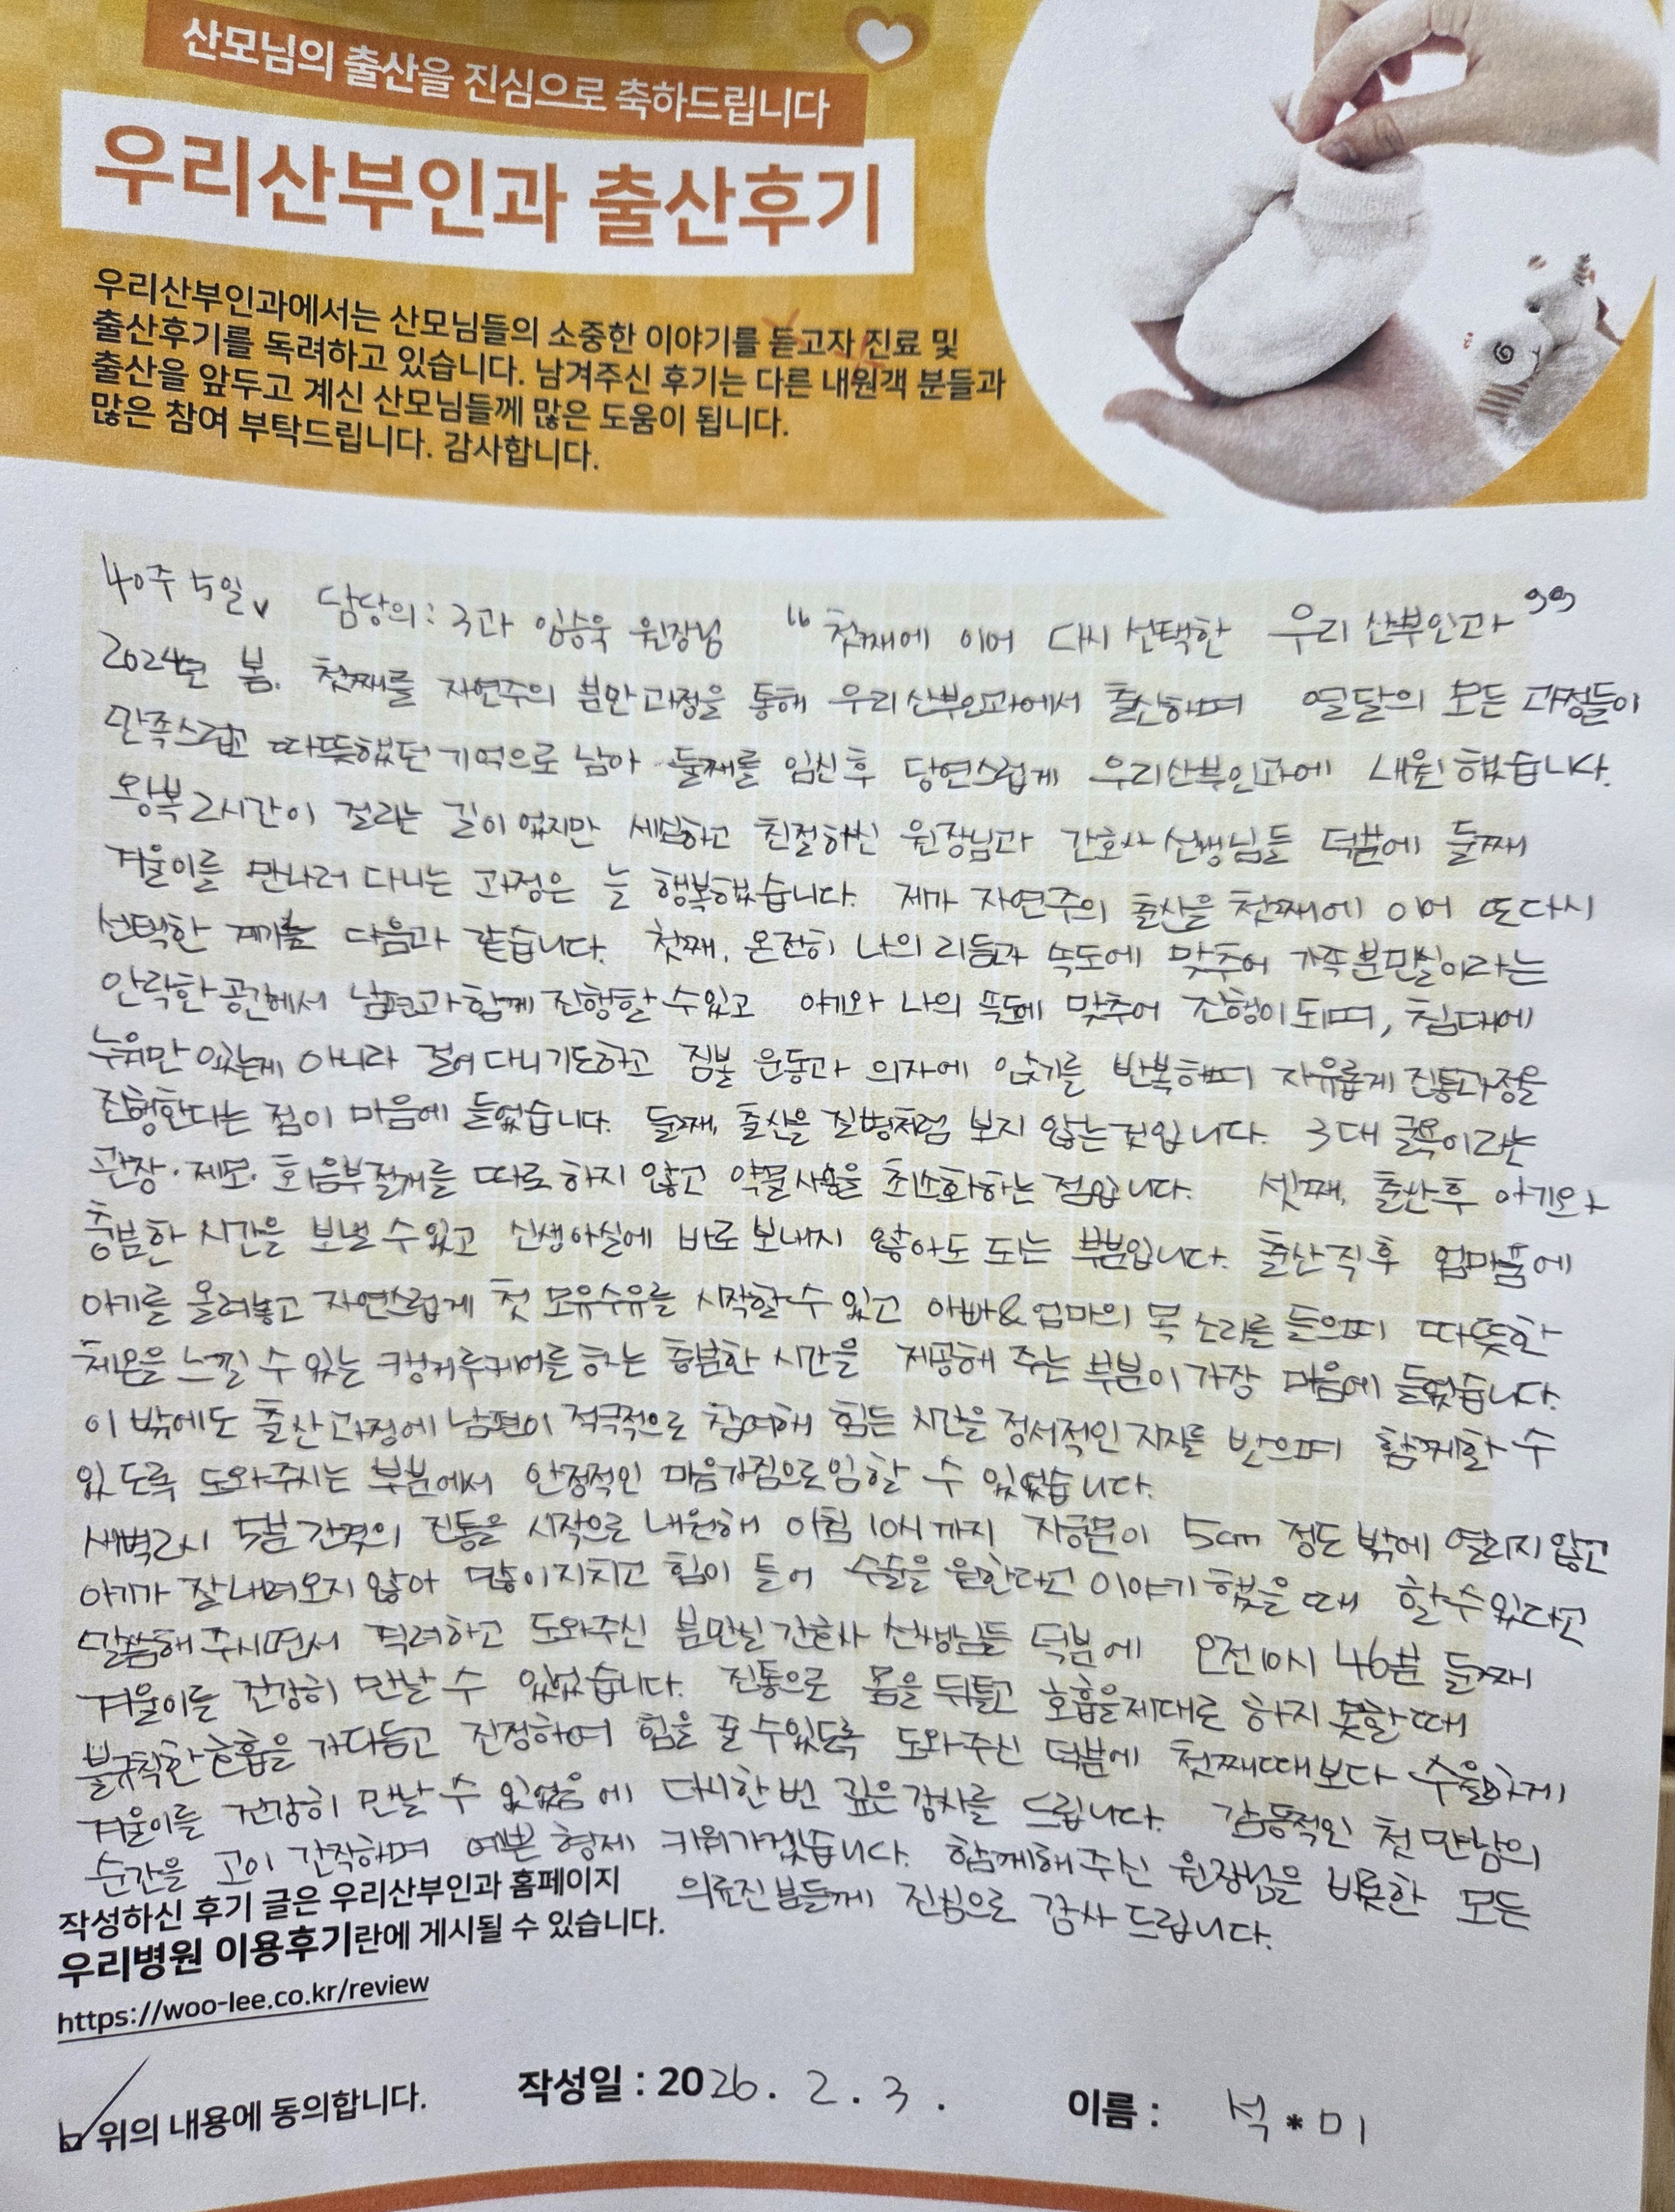 산모님의 출산을 진심으로 축하드립니다
우리산부인과 출산후기
우리산부인과에서는 산모님들의 소중한 이야기를 듣고자 진료 및
출산후기를 독려하고 있습니다. 남겨주신 후기는 다른 내원객 분들과
출산을 앞두고 계신 산모님들께 많은 도움이 됩니다.
많은 참여 부탁드립니다. 감사합니다.
40주 5일, 담당의: 3과 임승욱 원장님 "첫째에 이어 다시 선택한 우리 산부인과"
2024년 봄. 첫째를 자연주의 분만과정을 통해 우리산부인과에서 출산하며 열달의 모든 과정들이
만족스럽고 따뜻했던 기억으로 남아 둘째를 임신 후 당연스럽게 우리산부인과에 내원했습니다.
왕복 2시간이 걸리는 길이었지만 세심하고 친절하신 원장님과 간호사 선생님들 덕분에 둘째
겨울이를 만나러 다니는 과정은 늘 행복했습니다. 제가 자연주의 출산을 첫째에 이어 또다시
선택한 계기는 다음과 같습니다. 첫째, 온전히 나의 리듬과 속도에 맞추어 가족분만실이라는
안락한 공간에서 남편과 함께 진행할 수 있고 아기와 나의 속도에 맞추어 진행이 되며, 침대에
누워만 있는게 아니라 걸어 다니기도하고 짐볼 운동과 의자에 앉기를 반복하며 자유롭게 진통과정을
진행한다는 점이 마음에 들었습니다. 둘째, 출산을 질병처럼 보지 않는것입니다. 3대 굴욕이라는
관장·제모·회음부절개를 따로 하지 않고 약물사용을 최소화하는 점입니다. 셋째, 출산 후 아기와
충분한 시간을 보낼 수 있고 신생아실에 바로 보내지 않아도 되는 부분입니다. 출산 직후 엄마품에
아기를 올려놓고 자연스럽게 첫 모유수유를 시작할 수 있고 아빠&엄마의 목소리를 들으며 따뜻한
체온을 느낄 수 있는 캥거루케어를 하는 충분한 시간을 제공해 주는 부분이 가장 마음에 들었습니다.
이 밖에도 출산과정에 남편이 적극적으로 참여해 힘든 시간을 정서적인 지지를 받으며 함께할 수
있도록 도와주시는 부분에서 안정적인 마음가짐으로 임할 수 있었습니다.
새벽2시 5분 간격의 진통을 시작으로 내원해 아침 10시까지 자궁문이 5cm 정도 밖에 열리지 않고
아기가 잘 내려오지 않아 많이 지치고 힘이 들어 수술을 원한다고 이야기 했을 때 할 수 있다고
말씀해 주시면서 격려하고 도와주신 분만실 간호사 선생님들 덕분에 오전10시 46분 둘째
겨울이를 건강히 만날 수 있었습니다. 진통으로 몸을 뒤틀고 호흡을 제대로 하지 못할 때
불규칙한 호흡을 가다듬고 진정하며 힘을 줄 수 있도록 도와주신 덕분에 첫째때보다 수월하게
겨울이를 건강히 만날 수 있었음에 다시한번 깊은 감사를 드립니다. 감동적인 첫 만남의
순간을 고이 간직하며 예쁜 형제 키워가겠습니다. 함께해 주신 원장님을 비롯한 모든
의료진 분들께 진심으로 감사 드립니다.
작성하신 후기 글은 우리산부인과 홈페이지
우리병원 이용후기란에 게시될 수 있습니다.
https://woo-lee.co.kr/review
위의 내용에 동의합니다.
작성일 : 2026. 2. 3.
이름 : 석*미